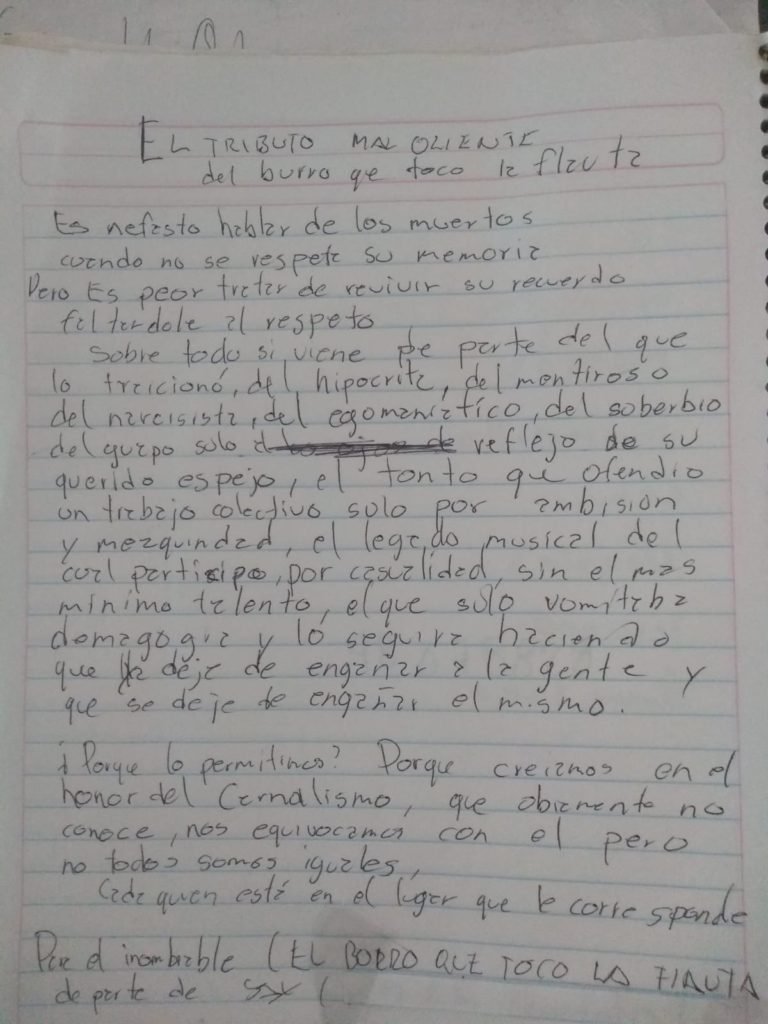 EL TRIBUTO MAL OLIENTE
del burro que toco la flauta
Es nefasto hablar de los muertos
cuando no se respeta su memoria
Pero Es peor tratar de revivir su recuerdo
faltandole al respeto
Sobre todo si viene de parte del que
lo traicionó, del hipocrita, del mentiroso
del narcisista, del egomaniatico, del soberbio
del guapo solo reflejo de su
querido espejo, el tonto que ofendio
un trabajo colectivo solo por ambision
y mezquindad, el legado musical del
cual participo, por casualidad, sin el mas
minimo talento, el que solo vomitaba
demagogia y lo seguira haciendo
que ya deje de engañar a la gente y
que se deje de engañar el mismo.
¿Porque lo permitimos? Porque creiamos en el
honor del Carnalismo, que obiamente no
conoce, nos equivocamos con el pero
no todos somos iguales,
Cada quien está en el lugar que le corresponde
Para el inombrable (EL BORRO QUE TOCO LA FLAUTA
de parte de